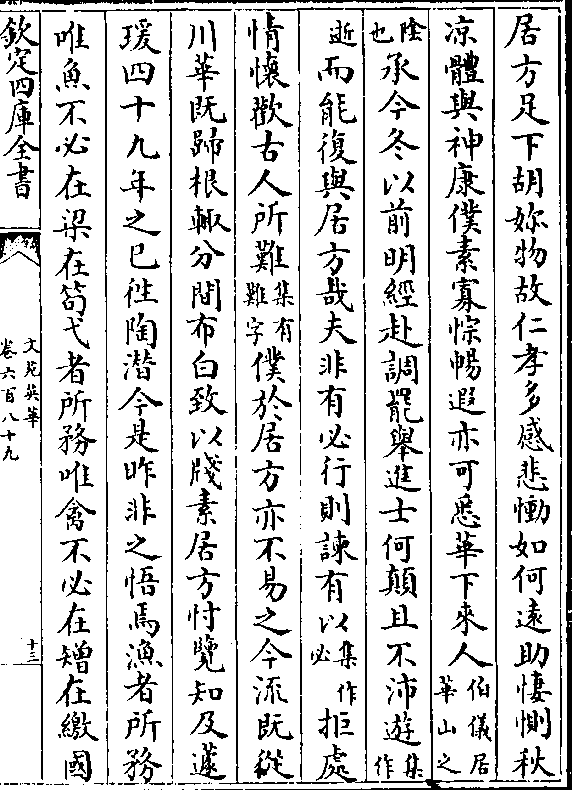 居方足下胡妳物故仁孝多感悲慟如何遠助悽惻秋
凉體與神康僕素寡悰暢遐亦可悉華下來人伯儀居華山之
隂也承今冬以前明經赴調罷舉進士何顛且不沛遊集作
逝而能復與居方哉夫非有必行則諫有以集作必拒處
情懷歡古人所難集有難字僕於居方亦不易之今流既從
川華既歸根輙分閒布白致以牋素居方忖覽知及蘧
瑗四十九年之已徃陶潜今是昨非之悟焉漁者所務
唯魚不必在梁在笱弋者所務唯禽不必在矰在繳國
欽定四庫全書
文苑英華
卷六百八十九
十三